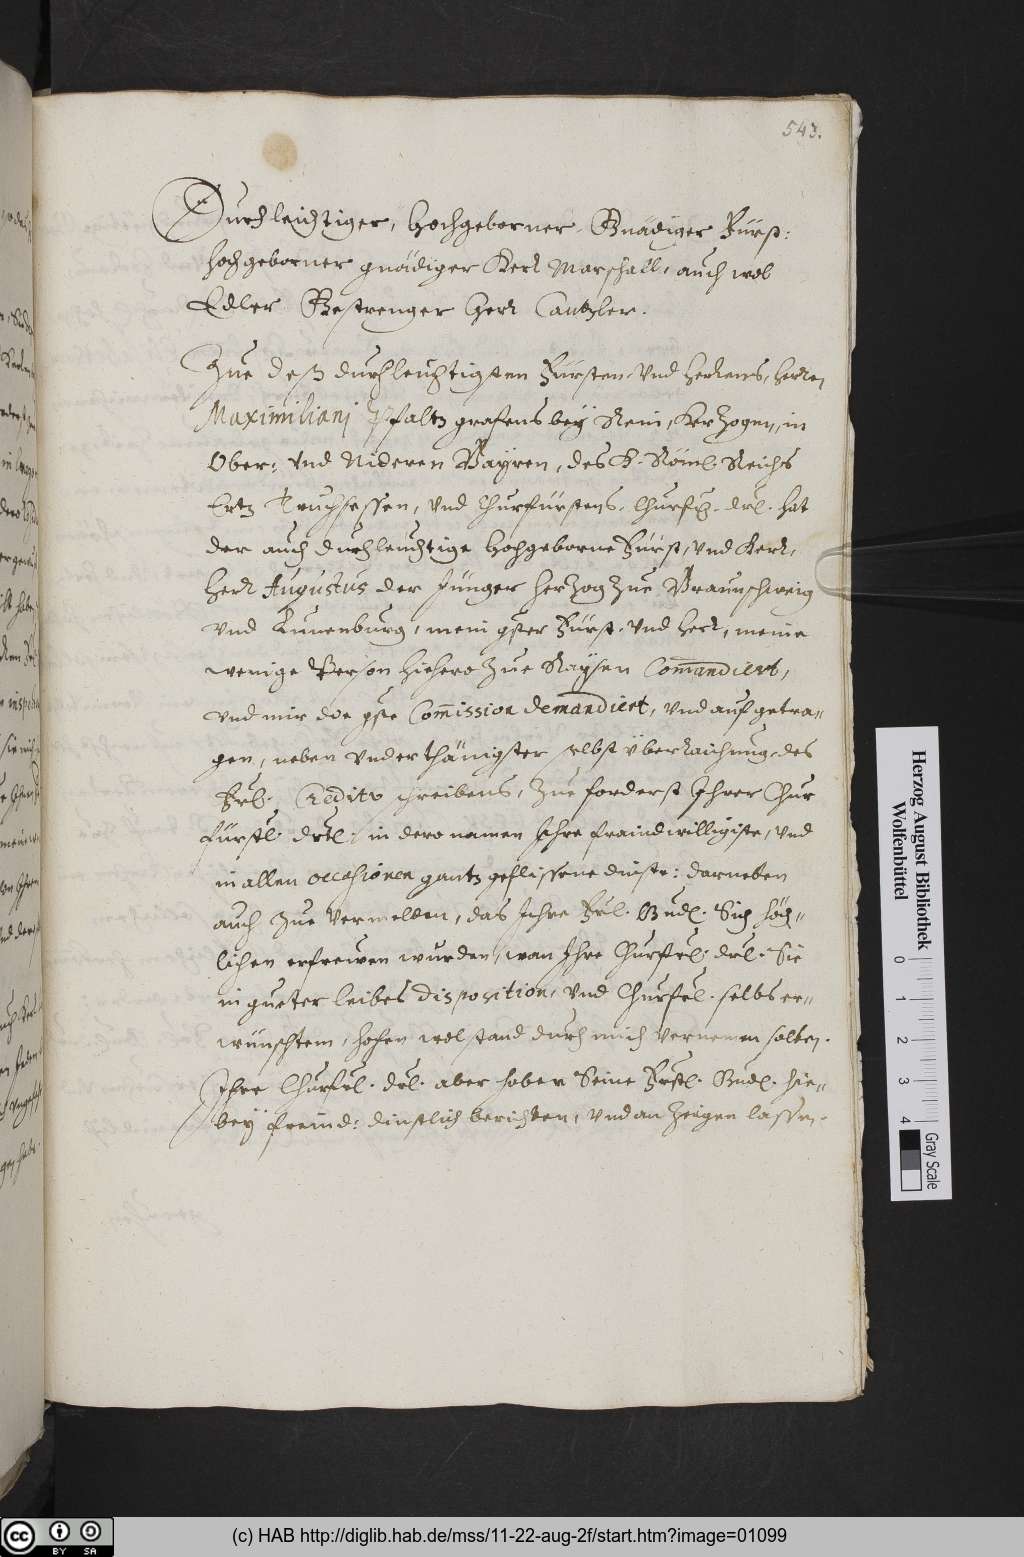 543.
Durchleichtiger, Hochgeborner, Gnädiger Fürst:
hochgeborner gnädiger Herr Marschall, auch wol
Edler Gestrenger Herr Cantzler.
Zue deß durchleuchtigsten Fürsten, vnd Herrens, Herren
Maximiliani Pfaltzgrafens bey Rein, Herzogen, in
Ober: vnd Nideren Bayren, des H. Röml. Reichs
Ertz Truchsessen, vnd Churfürstens, Churfl. drl. hat
der auch durchleuchtige Hochgeborne Fürst, vnd Herr,
Herr Augustus der Jünger Herzog zue Braunschweig
vnd Lunenburg, mein gster Fürst, vnd Herr, meine
wenige Person hiehero zue Raysen Com̄andiert,
vnd mir die gste Com̄ission demandiert, vnd aufgetra-
gen, neben vnderthänigster selbst überraichung, des
Frl. Creditv schreibens, zue forderst Ihrer Chur
fürstl. drtl. in dero namen Ihre fraindwilligiste, vnd
in allen occasionen gantz geflissene dinste: darneben
auch zue vermelden, das Ihre Frl. Gndl. Sich höch-
lichen erfrewen wurden, wan Ihre Churfrl. drl. Sie
in gueter leibes disposition, vnd Churfrl. selbs er-
wünschtem, hohen wolstand durch mich vernemen solten.
Ihre Churfrl. drl. aber haben Seine Frstl. Gndl. hie-
bey freind: dinstlich berichten, vnd an zeigen lassen.
Herzog August Bibliothek
Wolfenbüttel
0 1 2 3 4
Gray Scale
cc BY SA
(c) HAB http://diglib.hab.de/mss/11-22-aug-2f/start.htm?image=01099